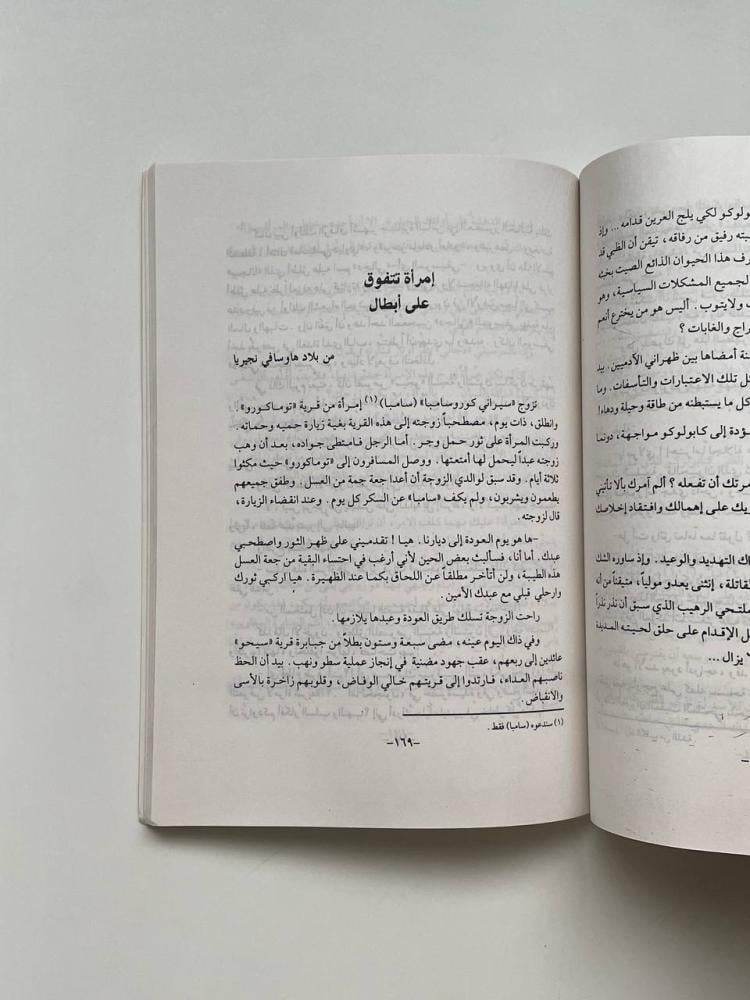 بولوكو لكي يلج العرين قدامه ... وإذ
بته رفيق من رفاقه، تيقن أن الظبي قد
رف هذا الحيوان الذائع الصيت بخب
لجميع المشكلات السياسية، وهو
ب ولايتوب. أليس هو من يخترع أنعم
راج والغابات ؟
نة أمضاها بين ظهراني الآدميين. بيد
كل تلك الاعتبارات والتأسفات. وما
كل ما يستبطنه من طاقة وحيلة ودهاء!
ـؤدة إلى كابولوكو مواجهة، دونما
مرتك أن تفعله ؟ ألم آمرك بألا تأتيني
ريك على إهمالك وافتقاد إخلاصك
اك التهديد والوعيد. وإذ ساوره الشك
قاتلة، إنثنى يعدو مولياً، متيقناً من أنه
ملتحي الرهيب الذي سبق أن نذر نذراً
ل الإقدام على حلق لحيته المديدة
لا يزال ...
إمرأة تتفوق
على أبطال
من بلاد هاوسافي نجيريا
تزوج «سيراني كوروسامبا» (سامبا) (١) إمرأة من قرية «توماكورو».
وانطلق، ذات يوم، مصطحباً زوجته إلى هذه القرية بغية زيارة حميه وحماته.
وركبت المرأة على ثور حمل وجر. أما الرجل فامتطى جواده، بعد أن وهب
زوجته عبداً ليحمل لها أمتعتها. ووصل المسافرون إلى «توماكورو» حيث مكثوا
ثلاثة أيام. وقد سبق لوالدي الزوجة أن أعدا جعة جمة من العسل. وطفق جميعهم
يطعمون ويشربون، ولم يكف «سامبا» عن السكر كل يوم. وعند انقضاء الزيارة،
قال لزوجته.
-ها هو يوم العودة إلى ديارنا. هيا ! تقدميني على ظهر الثور واصطحبي
عبدك. أما أنا، فسألبث بعض الحين لأني أرغب في احتساء البقية من جعة العسل
هذه الطيبة، ولن أتأخر مطلقاً عن اللحاق بكما عند الظهيرة. هيا اركبي ثورك
وارحلي قبلي مع عبدك الأمين.
راحت الزوجة تسلك طريق العودة وعبدها يلازمها.
وفي ذاك اليوم عينه، مضى سبعة وستون بطلاً من جبابرة قرية «سيحو»
عائدين إلى ربعهم، عقب جهود مضنية في إنجاز عملية سطو ونهب. بيد أن الحظ
ناصبهم العداء، فارتدوا إلى قريتهم خالي الوفاض، وقلوبهم زاخرة بالأسى
والانقباض.
(١) سندعوه (سامبا) فقط.
-١٦٩-